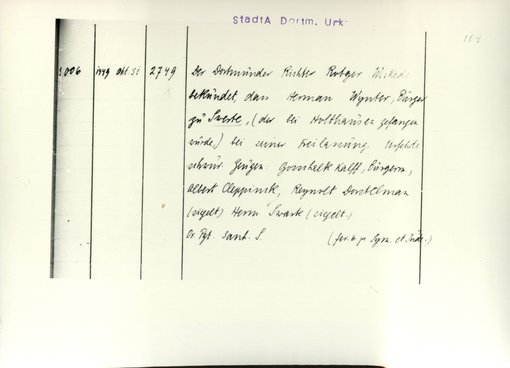 StadtA Dortm. Urk.
104
1006 1449 okt 31 2749 Der Dortmunder Richter Rotger Wickede
bekundet, dass Herman Wynter, Bürger
zu Swerte, (der bei Holthausen gefangen
wurde,) bei seiner Freilassung Urfehde
schwur. Zeugen: Gosschalk Kalff, Bürgern,
Albert Cleppinck, Reynolt
(siegelt) Herm. Swark (siegelt.)
Or. Pgt. S. (fer. 6 p Sym. et Jude.)